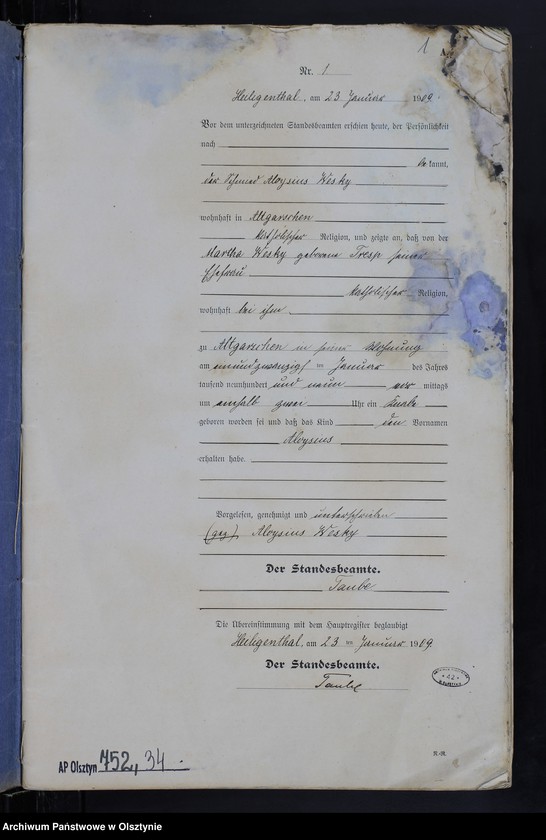 1
A.
Nr. 1
Heiligenthal, am 23 Januar 1909.
Vor dem unterzeichneten Standesbeamten erschien heute, der Persönlichkeit
nach
bekannt,
der Schmied Aloysius Wesky
wohnhaft in Altgarschen
katholischer Religion, und zeigte an, daß von der
Martha Wesky geborene Tresp seiner
Ehefrau
katholischer Religion,
wohnhaft bei ihm
zu Altgarschen in seiner Wohnung
am einundzwanzigsten Januar des Jahres
tausend neunhundert und neun vormittags
um einhalb zwei Uhr ein Knabe
geboren worden sei und daß das Kind den Vornamen
Aloysius
erhalten habe.
Vorgelesen, genehmigt und unterschrieben
(gez). Aloysius Wesky
Der Standesbeamte.
Taube
Die Übereinstimmung mit dem Hauptregister beglaubigt
Heiligenthal, am 23 ten Januar 1909.
Der Standesbeamte.
Taube
42
R.-R.
AP Olsztyn 752, 34
Archiwum Państwowe w Olsztynie